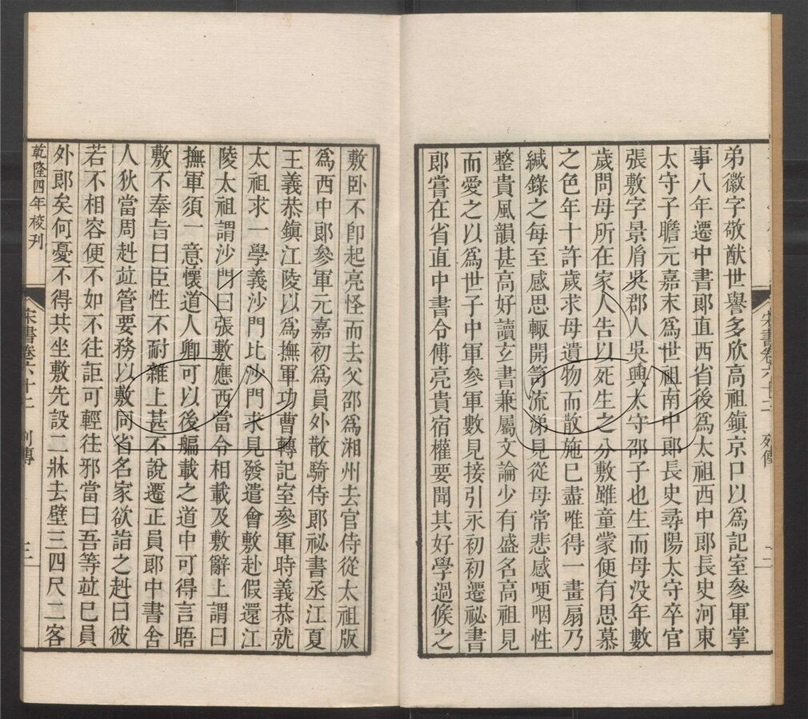 弟徽字敬猷世譽多欣高祖鎮京口以爲記室參軍掌
事八年遷中書郎直西省後爲太祖西中郎長史河東
太守子瞻元嘉末爲世祖南中郎長史尋陽太守卒官
張敷字景胤吳郡人吳興太守邵子也生而母没年數
歲問母所在家人告以死生之分敷雖童蒙便有思慕
之色年十許歲求母遺物而散施已盡唯得一畫扇乃
緘錄之每至感思輒開笥流涕見從母常悲感哽咽性
整貴風韻甚高好讀玄書兼屬文論少有盛名高祖見
而愛之以爲世子中軍參軍數見接引永初初遷祕書
郎嘗在省直中書令傅亮貴宿權要聞其好學過候之
宋書卷六十二 列傳 二
敷卧不即起亮怪而去父邵爲湘州去官侍從太祖版
爲西中郎參軍元嘉初爲員外散騎侍郎祕書丞江夏
王義恭鎮江陵以爲撫軍功曹轉記室參軍時義恭就
太祖求一學義沙門比沙門求見發遣會敷赴假還江
陵太祖謂沙門曰張敷應西當令相載及敷辭上謂曰
撫軍須一意懷道人卿可以後艑載之道中可得言晤
敷不奉旨曰臣性不耐雜上甚不說遷正員郎中書舍
人狄當周赳並管要務以敷同省名家欲詣之赳曰彼
若不相容便不如不往詎可輕往邪當曰吾等並已員
外郎矣何憂不得共坐敷先設二牀去壁三四尺二客
乾隆四年校刊
宋書卷六十二 列傳 三